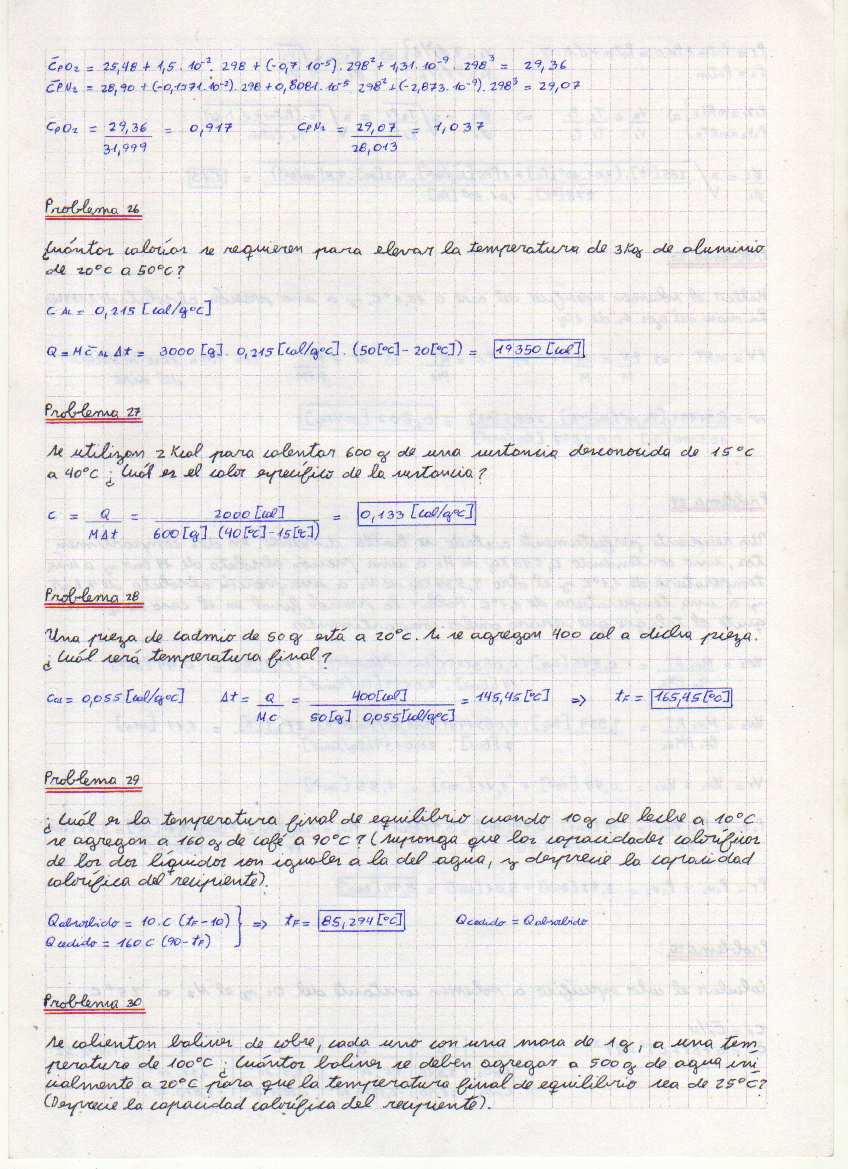 C̄pO2 = 25,48 + 1,5 · 10⁻² · 298 + (-0,7 · 10⁻⁵) · 298² + 1,31 · 10⁻⁹ · 298³ = 29,36
C̄pN2 = 28,90 + (-0,1571 · 10⁻²) · 298 + 0,8081 · 10⁻⁵ · 298² + (-2,873 · 10⁻⁹) · 298³ = 29,07
CpO2 = 29,36 / 31,999 = 0,917 CpN2 = 29,07 / 28,013 = 1,037
Problema 26
¿Cuántas calorías se requieren para elevar la temperatura de 3Kg de aluminio
de 20°C a 50°C?
C AL = 0,215 [cal/g°C]
Q = M C̄ AL Δt = 3000 [g] · 0,215 [cal/g°C] · (50[°C] - 20[°C]) = 19350 [cal]
Problema 27
Se utilizan 2 Kcal para calentar 600 g de una sustancia desconocida de 15°C
a 40°C ¿Cuál es el calor específico de la sustancia?
C = Q / MΔt = 2000 [cal] / 600 [g] (40[°C] - 15[°C]) = 0,133 [cal/g°C]
Problema 28
Una pieza de cadmio de 50g está a 20°C. Si se agregan 400 cal a dicha pieza.
¿Cuál será temperatura final?
Ccd = 0,055 [cal/g°C] Δt = Q / MC = 400[cal] / 50[g] 0,055[cal/g°C] = 145,45 [°C] => tF = 165,45 [°C]
Problema 29
¿Cuál es la temperatura final de equilibrio cuando 10g de leche a 10°C
se agregan a 160g de café a 90°C? (Suponga que las capacidades caloríficas
de los dos líquidos son iguales a la del agua, y desprecie la capacidad
calorífica del recipiente).
Qabsorbido = 10 · C (tF - 10)
Qcedido = 160 C (90 - tF) } => tF = 85,294 [°C] Qcedido = Qabsorbido
Problema 30
Se calientan balines de cobre, cada uno con una masa de 1g, a una tem
peratura de 100°C ¿Cuántos balines se deben agregar a 500g de agua ini
cialmente a 20°C para que la temperatura final de equilibrio sea de 25°C?
(Desprecie la capacidad calorífica del recipiente).